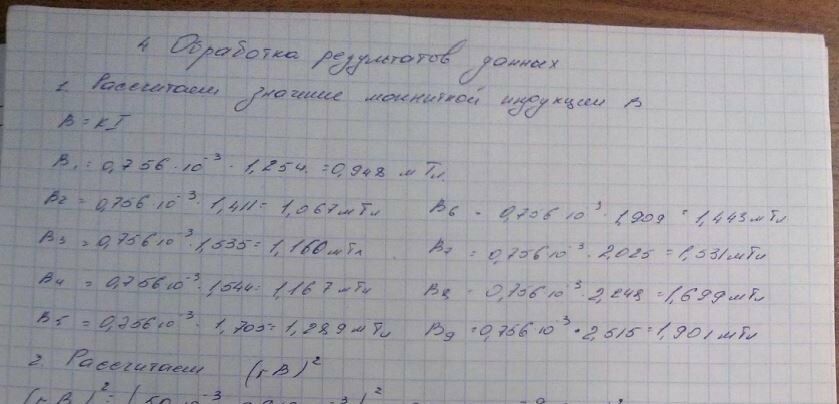 4 Обработка результатов данных
1. Рассчитаем значние магниткой индукции B
B = kI
B₁ = 0,756 · 10⁻³ · 1,254 = 0,948 мТл
B2 = 0,756 · 10⁻³ · 1,411 = 1,067 мТл
B3 = 0,756 · 10⁻³ · 1,535 = 1,160 мТл
B4 = 0,756 10⁻³ · 1,544 = 1,167 мТл
B5 = 0,756 10⁻³ · 1,705 = 1,289 мТл
B6 = 0,756 10⁻³ · 1,909 = 1,443 мТл
B7 = 0,756 10⁻³ · 2,025 = 1,531 мТл
B8 = 0,756 10⁻³ · 2,248 = 1,699 мТл
B9 = 0,756 10⁻³ · 2,515 = 1,901 мТл
2. Рассчитаем (rB)²